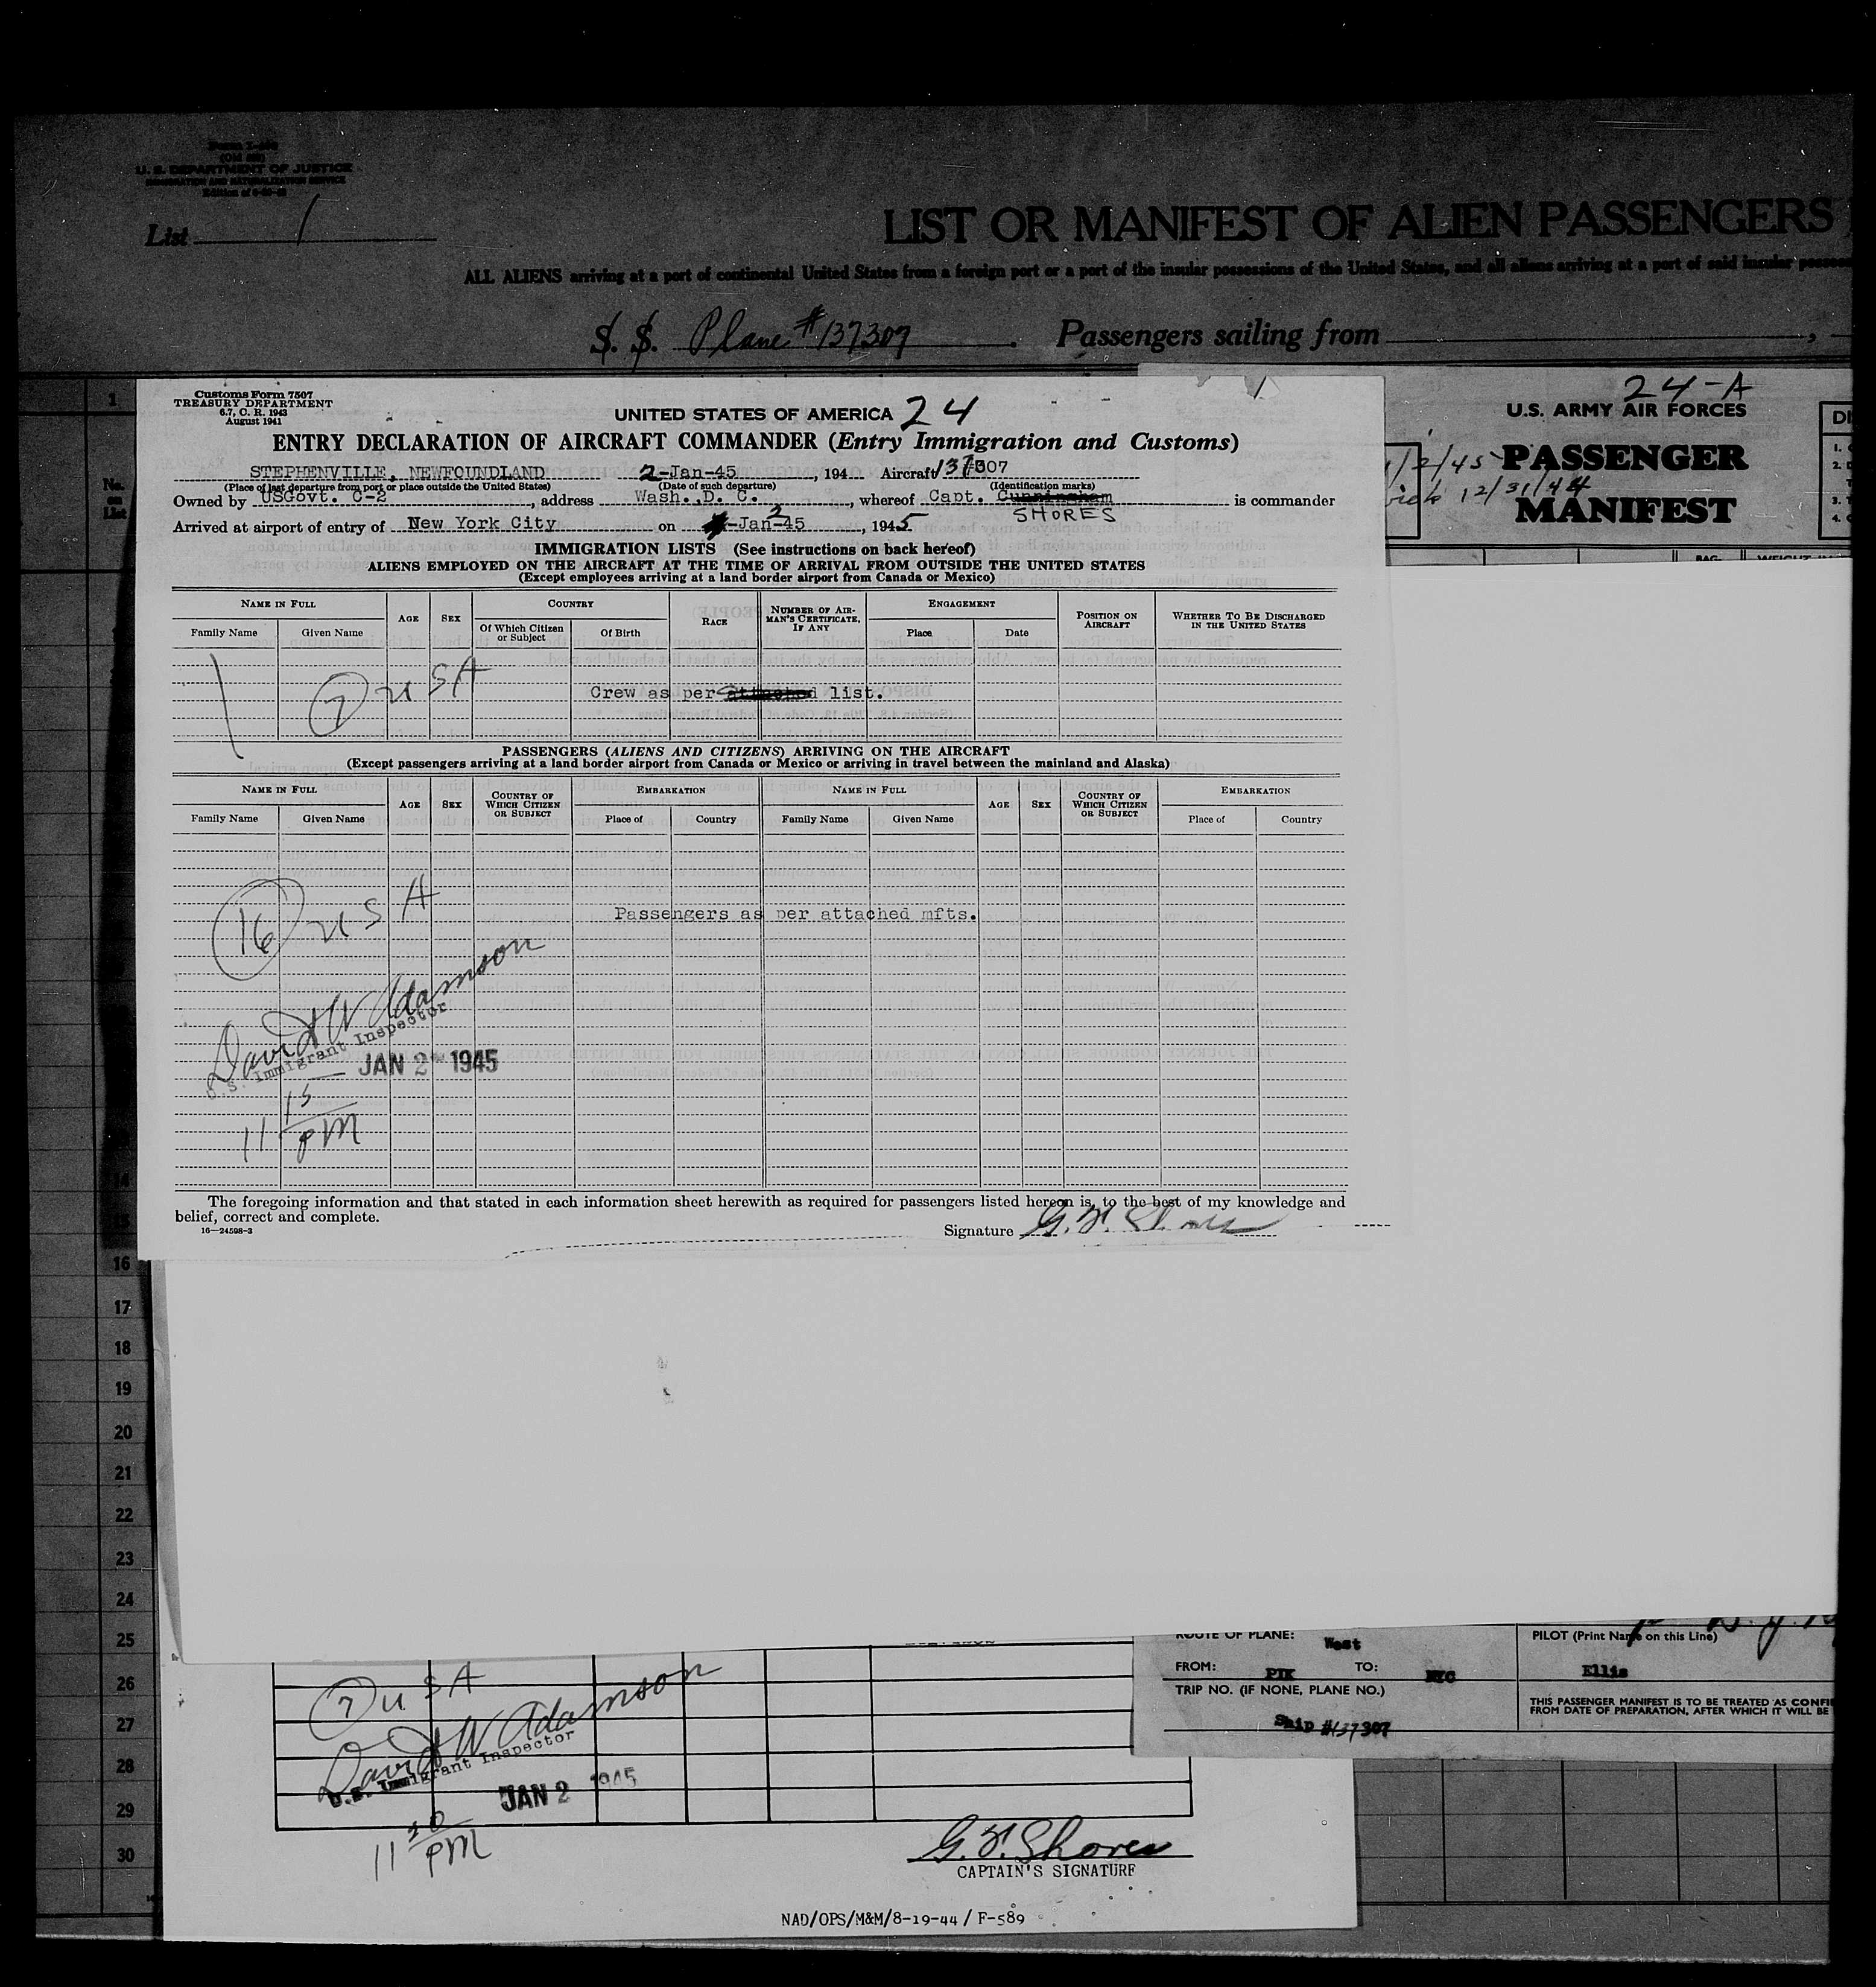 U. S. DEPARTMENT OF JUSTICE
IMMIGRATION AND NATURALIZATION SERVICE
List 1
LIST OR MANIFEST OF ALIEN PASSENGERS
ALL ALIENS arriving at a port of continental United States from a foreign port or a port of the insular possessions of the United States, and all aliens arriving at a port of said insular
S. S. Plane #137307 . Passengers sailing from ,
No. on List
1
Customs Form 7507
TREASURY DEPARTMENT
6.7, C. R. 1943
August 1941
1
UNITED STATES OF AMERICA 24
ENTRY DECLARATION OF AIRCRAFT COMMANDER (Entry Immigration and Customs)
STEPHENVILLE, NEWFOUNDLAND 2-Jan-45, 194 Aircraft 137307
(Place of last departure from port or place outside the United States) (Date of such departure) (Identification marks)
Owned by USGovt. C-2, address Wash., D. C., whereof Capt. Cunningham is commander
SHORES
Arrived at airport of entry of New York City on -Jan 2-45, 1945
IMMIGRATION LISTS (See instructions on back hereof)
ALIENS EMPLOYED ON THE AIRCRAFT AT THE TIME OF ARRIVAL FROM OUTSIDE THE UNITED STATES
(Except employees arriving at a land border airport from Canada or Mexico)
NAME IN FULL AGE SEX COUNTRY RACE NUMBER OF AIRMAN'S CERTIFICATE, IF ANY ENGAGEMENT POSITION ON AIRCRAFT WHETHER TO BE DISCHARGED IN THE UNITED STATES
Family Name Given Name Of Which Citizen or Subject Of Birth Place Date
7 USA
Crew as per attached list.
PASSENGERS (ALIENS AND CITIZENS) ARRIVING ON THE AIRCRAFT
(Except passengers arriving at a land border airport from Canada or Mexico or arriving in travel between the mainland and Alaska)
NAME IN FULL AGE SEX COUNTRY OF WHICH CITIZEN OR SUBJECT EMBARKATION NAME IN FULL AGE SEX COUNTRY OF WHICH CITIZEN OR SUBJECT EMBARKATION
Family Name Given Name Place of Country Family Name Given Name Place of Country
16 USA
Passengers as per attached mfts.
David W Adamson
U.S. Immigrant Inspector
JAN 2 1945
11 15 pm
The foregoing information and that stated in each information sheet herewith as required for passengers listed hereon is, to the best of my knowledge and
belief, correct and complete.
16—24598-3
Signature G. F. Shores
24-A
U.S. ARMY AIR FORCES
PASSENGER
MANIFEST
1/2/45
12/31/44
14
15
16
17
18
19
20
21
22
23
24
25
26
27
28
29
30
7 USA
David W Adamson
U.S. Immigrant Inspector
JAN 2 1945
11 20 pm
G. F. Shores
CAPTAIN'S SIGNATURE
NAD/OPS/M&M/8-19-44 / F-589
ROUTE OF PLANE: West
FROM: PIK TO: NYC
TRIP NO. (IF NONE, PLANE NO.)
Ship #137307
PILOT (Print Name on this Line)
Ellis
THIS PASSENGER MANIFEST IS TO BE TREATED AS
FROM DATE OF PREPARATION, AFTER WHICH IT WILL BE